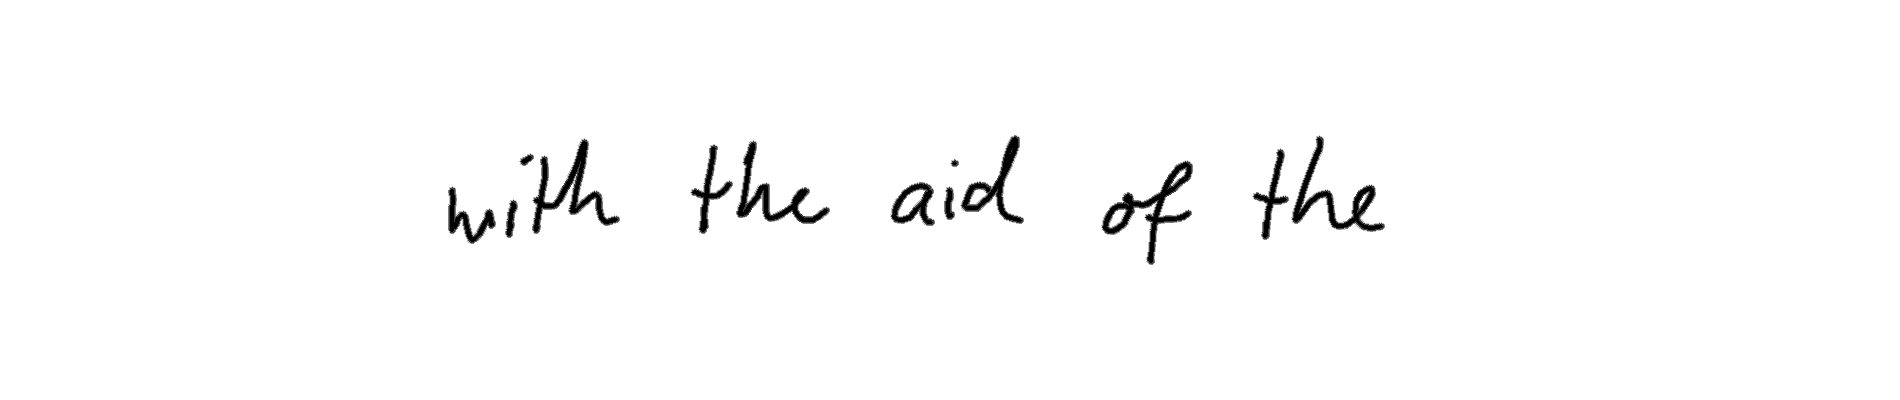 with the aid of the